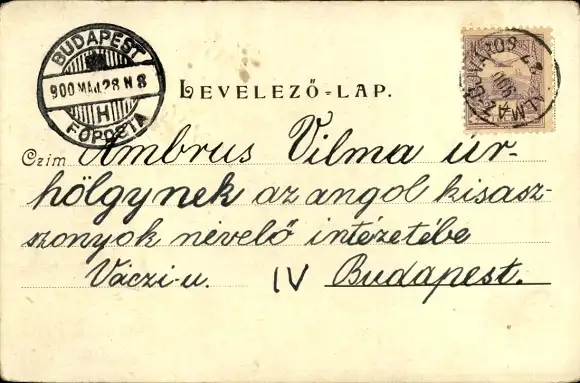 BUDAPEST
900 MÁJ. 28 N 8
H
FŐPOSTA
LEVELEZŐ-LAP.
Czim Ambrus Vilma úr-
hölgynek az angol kisasz-
szonyok nevelő intézetébe
Váczi-u. IV Budapest.